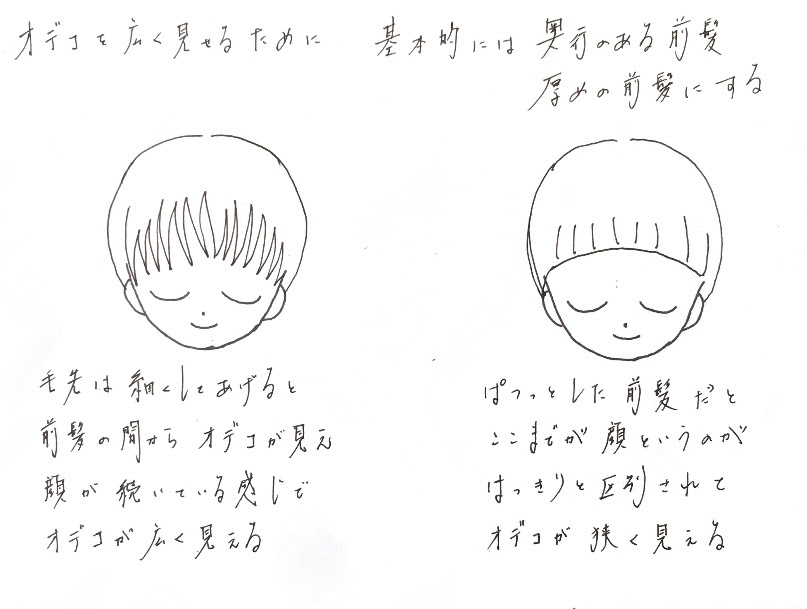 オデコを広く見せるために
基本的には奥行のある前髪
厚めの前髪にする
毛先は細くしてあげると
前髪の間からオデコが見え
顔が続いている感じで
オデコが広く見える
ぱつっとした前髪だと
ここまでが顔というのが
はっきりと区別されて
オデコが狭く見える